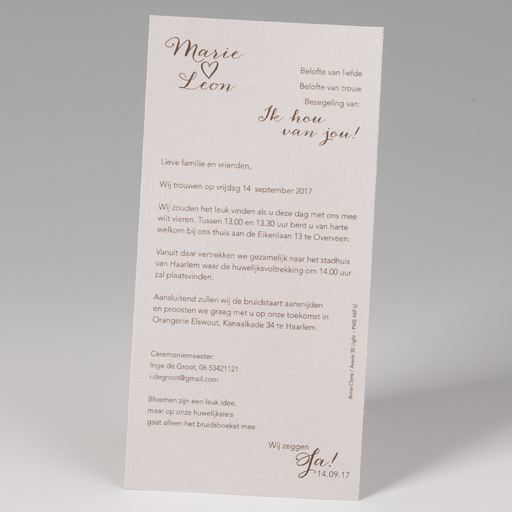 Marie
Leon
Belofte van liefde
Belofte van trouw
Bezegeling van:
Ik hou
van jou!
Lieve familie en vrienden,
Wij trouwen op vrijdag 14 september 2017
Wij zouden het leuk vinden als u deze dag met ons mee
wilt vieren. Tussen 13.00 en 13.30 uur bent u van harte
welkom bij ons thuis aan de Eikenlaan 13 te Overveen.
Vanuit daar vertrekken we gezamelijk naar het stadhuis
van Haarlem waar de huwelijksvoltrekking om 14.00 uur
zal plaatsvinden.
Aansluitend zullen wij de bruidstaart aansnijden
en proosten we graag met u op onze toekomst in
Orangerie Elswout, Kanaalkade 34 te Haarlem.
Ceremoniemeester:
Inge de Groot, 06 53421121
i.degroot@gmail.com
Bloemen zijn een leuk idee,
maar op onze huwelijksreis
gaat alleen het bruidsboeket mee.
Wij zeggen
Ja!
14.09.17
Anna Clara / Avenir 35 Light - PMS 469 U